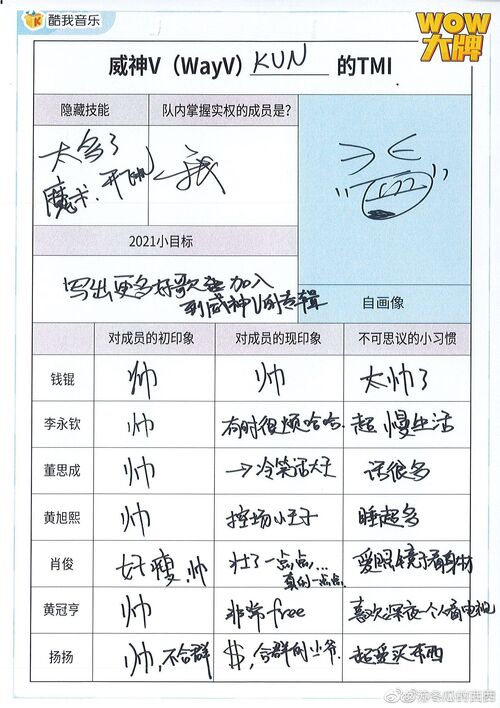 酷我音乐
WOW
大牌
威神V（WayV）KUN 的TMI
隐藏技能
队内掌握实权的成员是?
太多了
魔术、开飞机
我
2021小目标
写出更多好歌 加入
到威神V的专辑
自画像
对成员的初印象 对成员的现印象 不可思议的小习惯
钱锟 帅 帅 太帅了
李永钦 帅 有时很烦哈哈. 超慢生活
董思成 帅 →冷笑话大王 话很多
黄旭熙 帅 控场小王子 睡超多
肖俊 好瘦,帅 壮了一点点,... 爱照镜子看身材
真的一点点.
黄冠亨 帅 非常free 喜欢深夜一个人看电视
扬扬 帅,不合群 $,合群的少爷 超爱买东西